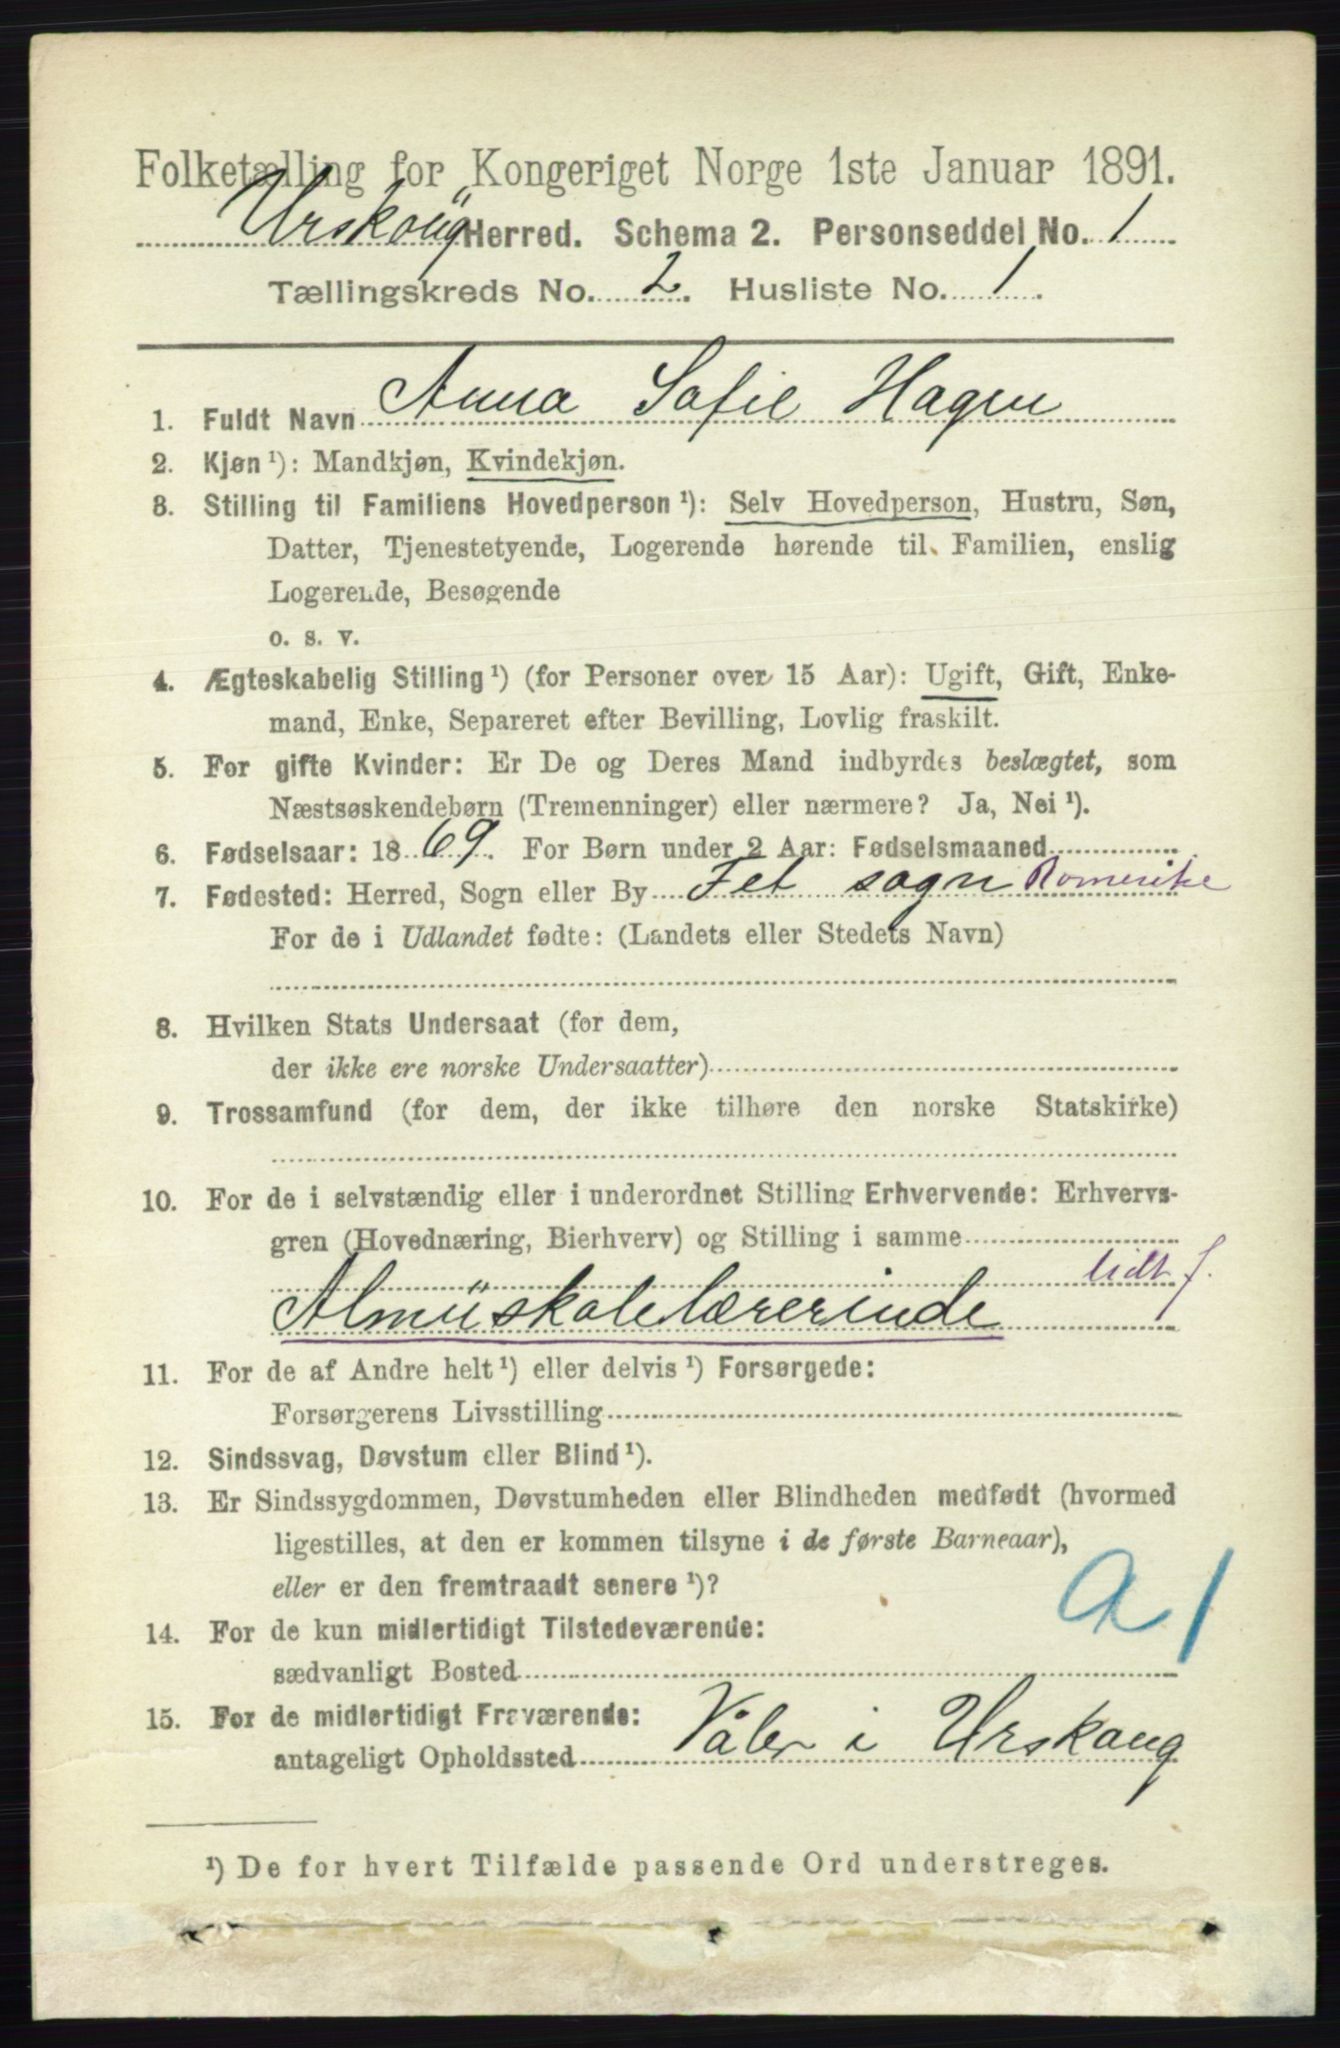 Folketælling for Kongeriget Norge 1ste Januar 1891.
Urskoug Herred. Schema 2. Personseddel No. 1
Tællingskreds No. 2. Husliste No. 1.
1. Fuldt Navn Anna Sofie Hagen
2. Kjøn ¹): Mandkjøn, Kvindekjøn.
3. Stilling til Familiens Hovedperson ¹): Selv Hovedperson, Hustru, Søn,
Datter, Tjenestetyende, Logerende hørende til Familien, enslig
Logerende, Besøgende
o. s. v.
4. Ægteskabelig Stilling ¹) (for Personer over 15 Aar): Ugift, Gift, Enke-
mand, Enke, Separeret efter Bevilling, Lovlig fraskilt.
5. For gifte Kvinder: Er De og Deres Mand indbyrdes beslægtet, som
Næstsøskendebørn (Tremenninger) eller nærmere? Ja, Nei ¹).
6. Fødselsaar: 1869. For Børn under 2 Aar: Fødselsmaaned
7. Fødested: Herred, Sogn eller By Fet sogn Romerike
For de i Udlandet fødte: (Landets eller Stedets Navn)
8. Hvilken Stats Undersaat (for dem,
der ikke ere norske Undersaatter)
9. Trossamfund (for dem, der ikke tilhøre den norske Statskirke)
10. For de i selvstændig eller i underordnet Stilling Erhvervende: Erhvervs-
gren (Hovednæring, Bierhverv) og Stilling i samme
lidt f.
Almuskolelærerinde
11. For de af Andre helt ¹) eller delvis ¹) Forsørgede:
Forsørgerens Livsstilling
12. Sindssvag, Døvstum eller Blind ¹).
13. Er Sindssygdommen, Døvstumheden eller Blindheden medfødt (hvormed
ligestilles, at den er kommen tilsyne i de første Barneaar),
eller er den fremtraadt senere ¹)?
a 1
14. For de kun midlertidigt Tilstedeværende:
sædvanligt Bosted
15. For de midlertidigt Fraværende:
antageligt Opholdssted Våler i Urskaug
¹) De for hvert Tilfælde passende Ord understreges.